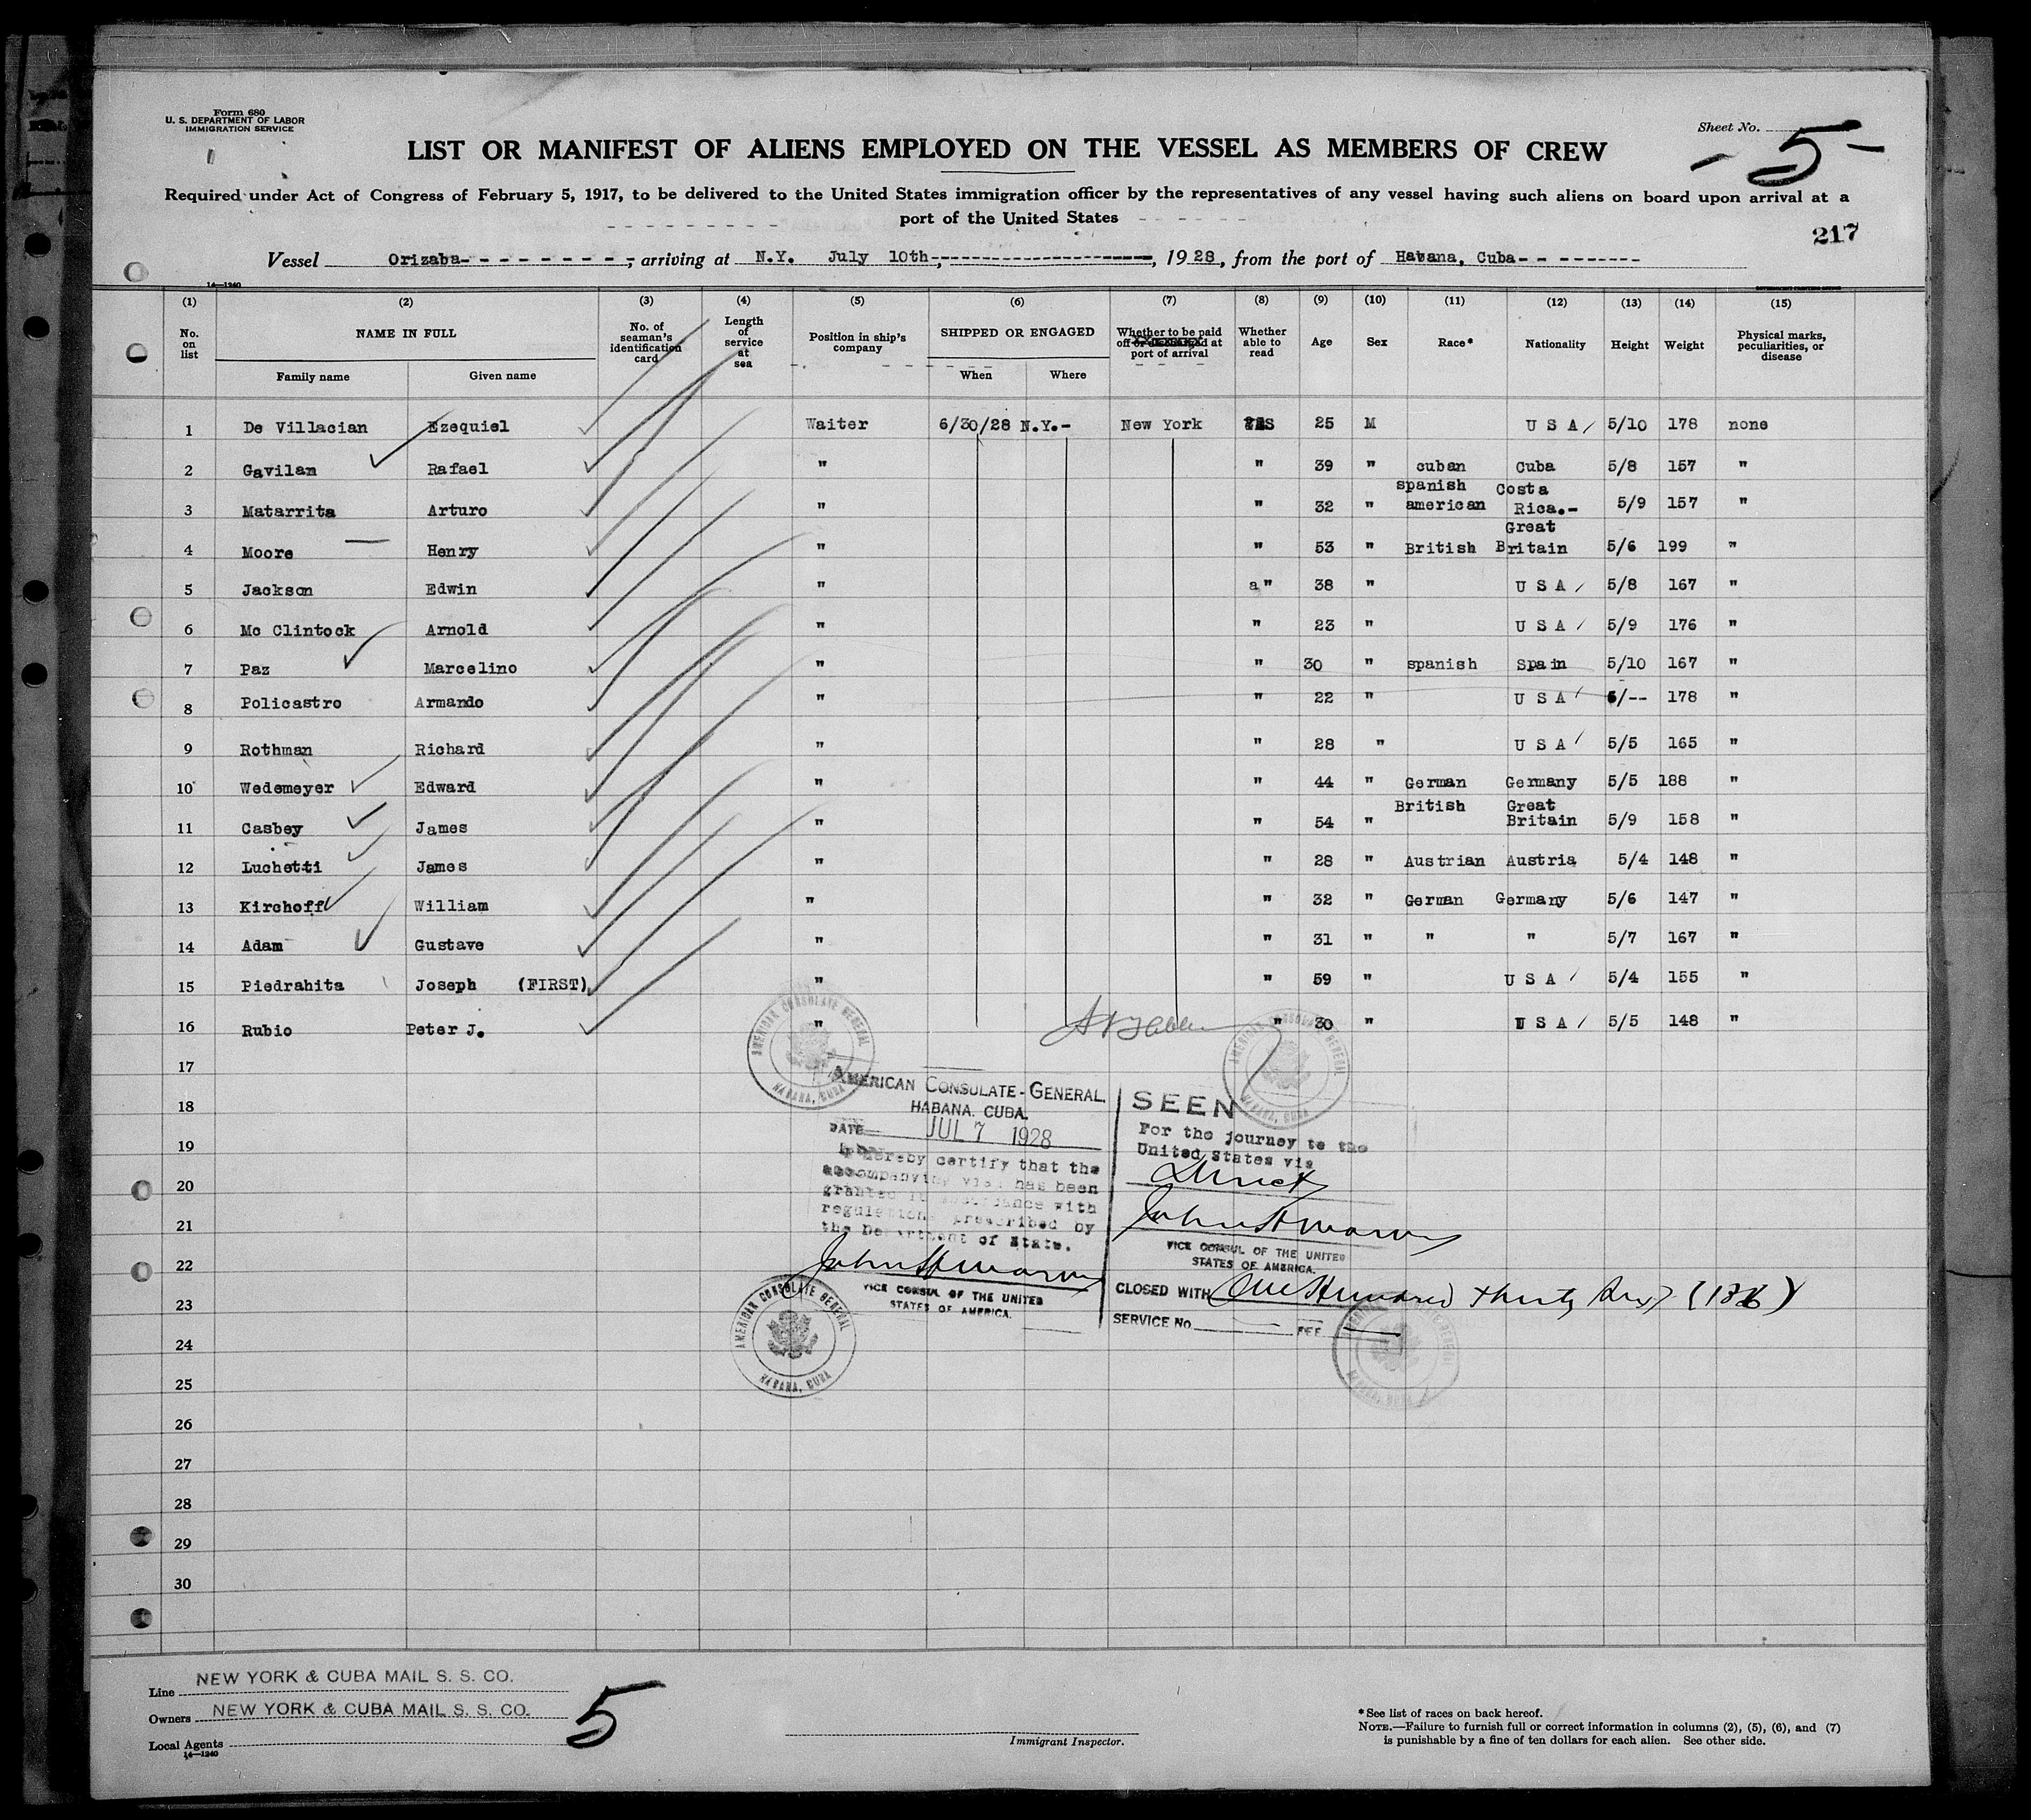 Form 680
U. S. DEPARTMENT OF LABOR
IMMIGRATION SERVICE
Sheet No. -5-
LIST OR MANIFEST OF ALIENS EMPLOYED ON THE VESSEL AS MEMBERS OF CREW
Required under Act of Congress of February 5, 1917, to be delivered to the United States immigration officer by the representatives of any vessel having such aliens on board upon arrival at a
port of the United States
217
Vessel Orizaba- - - - - - - - -, arriving at N.Y. July 10th, 1928, from the port of Havana, Cuba- - - - - - - - -
14—1240
(1) (2) (3) (4) (5) (6) (7) (8) (9) (10) (11) (12) (13) (14) (15)
No. on list NAME IN FULL No. of seaman's identification card Length of service at sea Position in ship's company SHIPPED OR ENGAGED Whether to be paid off or discharged at port of arrival Whether able to read Age Sex Race* Nationality Height Weight Physical marks, peculiarities, or disease
Family name Given name When Where
1 De Villacian Ezequiel Waiter 6/30/28 N.Y.- New York 25 M U S A 5/10 178 none
2 Gavilan Rafael " " 39 " cuban Cuba 5/8 157 "
3 Matarrita Arturo " " 32 " spanish american Costa Rica.- 5/9 157 "
4 Moore Henry " " 53 " British Great Britain 5/6 199 "
5 Jackson Edwin " a" 38 " U S A 5/8 167 "
6 Mc Clintock Arnold " " 23 " U S A 5/9 176 "
7 Paz Marcelino " " 30 " spanish Spain 5/10 167 "
8 Policastro Armando " " 22 " U S A /-- 178 "
9 Rothman Richard " " 28 " U S A 5/5 165 "
10 Wedemeyer Edward " " 44 " German Germany 5/5 188 "
11 Casbey James " " 54 " British Great Britain 5/9 158 "
12 Luchetti James " " 28 " Austrian Austria 5/4 148 "
13 Kirchoff William " " 32 " German Germany 5/6 147 "
14 Adam Gustave " " 31 " " " 5/7 167 "
15 Piedrahita Joseph (FIRST) " " 59 " U S A 5/4 155 "
16 Rubio Peter J. " " 30 " U S A 5/5 148 "
17
18
19
20
21
22
23
24
25
26
27
28
29
30
AMERICAN CONSULATE GENERAL
HABANA, CUBA
AMERICAN CONSULATE GENERAL
HABANA, CUBA
AMERICAN CONSULATE-GENERAL.
HABANA. CUBA.
DATE JUL 7 1928
I hereby certify that the
accompanying visa has been
granted in accordance with
regulations prescribed by
the Department of State.
VICE CONSUL OF THE UNITED
STATES OF AMERICA.
AMERICAN CONSULATE GENERAL
HABANA, CUBA
SEEN
For the journey to the
United States via
Direct
VICE CONSUL OF THE UNITED
STATES OF AMERICA.
CLOSED WITH One Hundred thirty Six (136)
SERVICE No. FEE
Line NEW YORK & CUBA MAIL S. S. CO.
Owners NEW YORK & CUBA MAIL S. S. CO.
Local Agents
14—1240
5
Immigrant Inspector.
*See list of races on back hereof.
NOTE.—Failure to furnish full or correct information in columns (2), (5), (6), and (7)
is punishable by a fine of ten dollars for each alien. See other side.